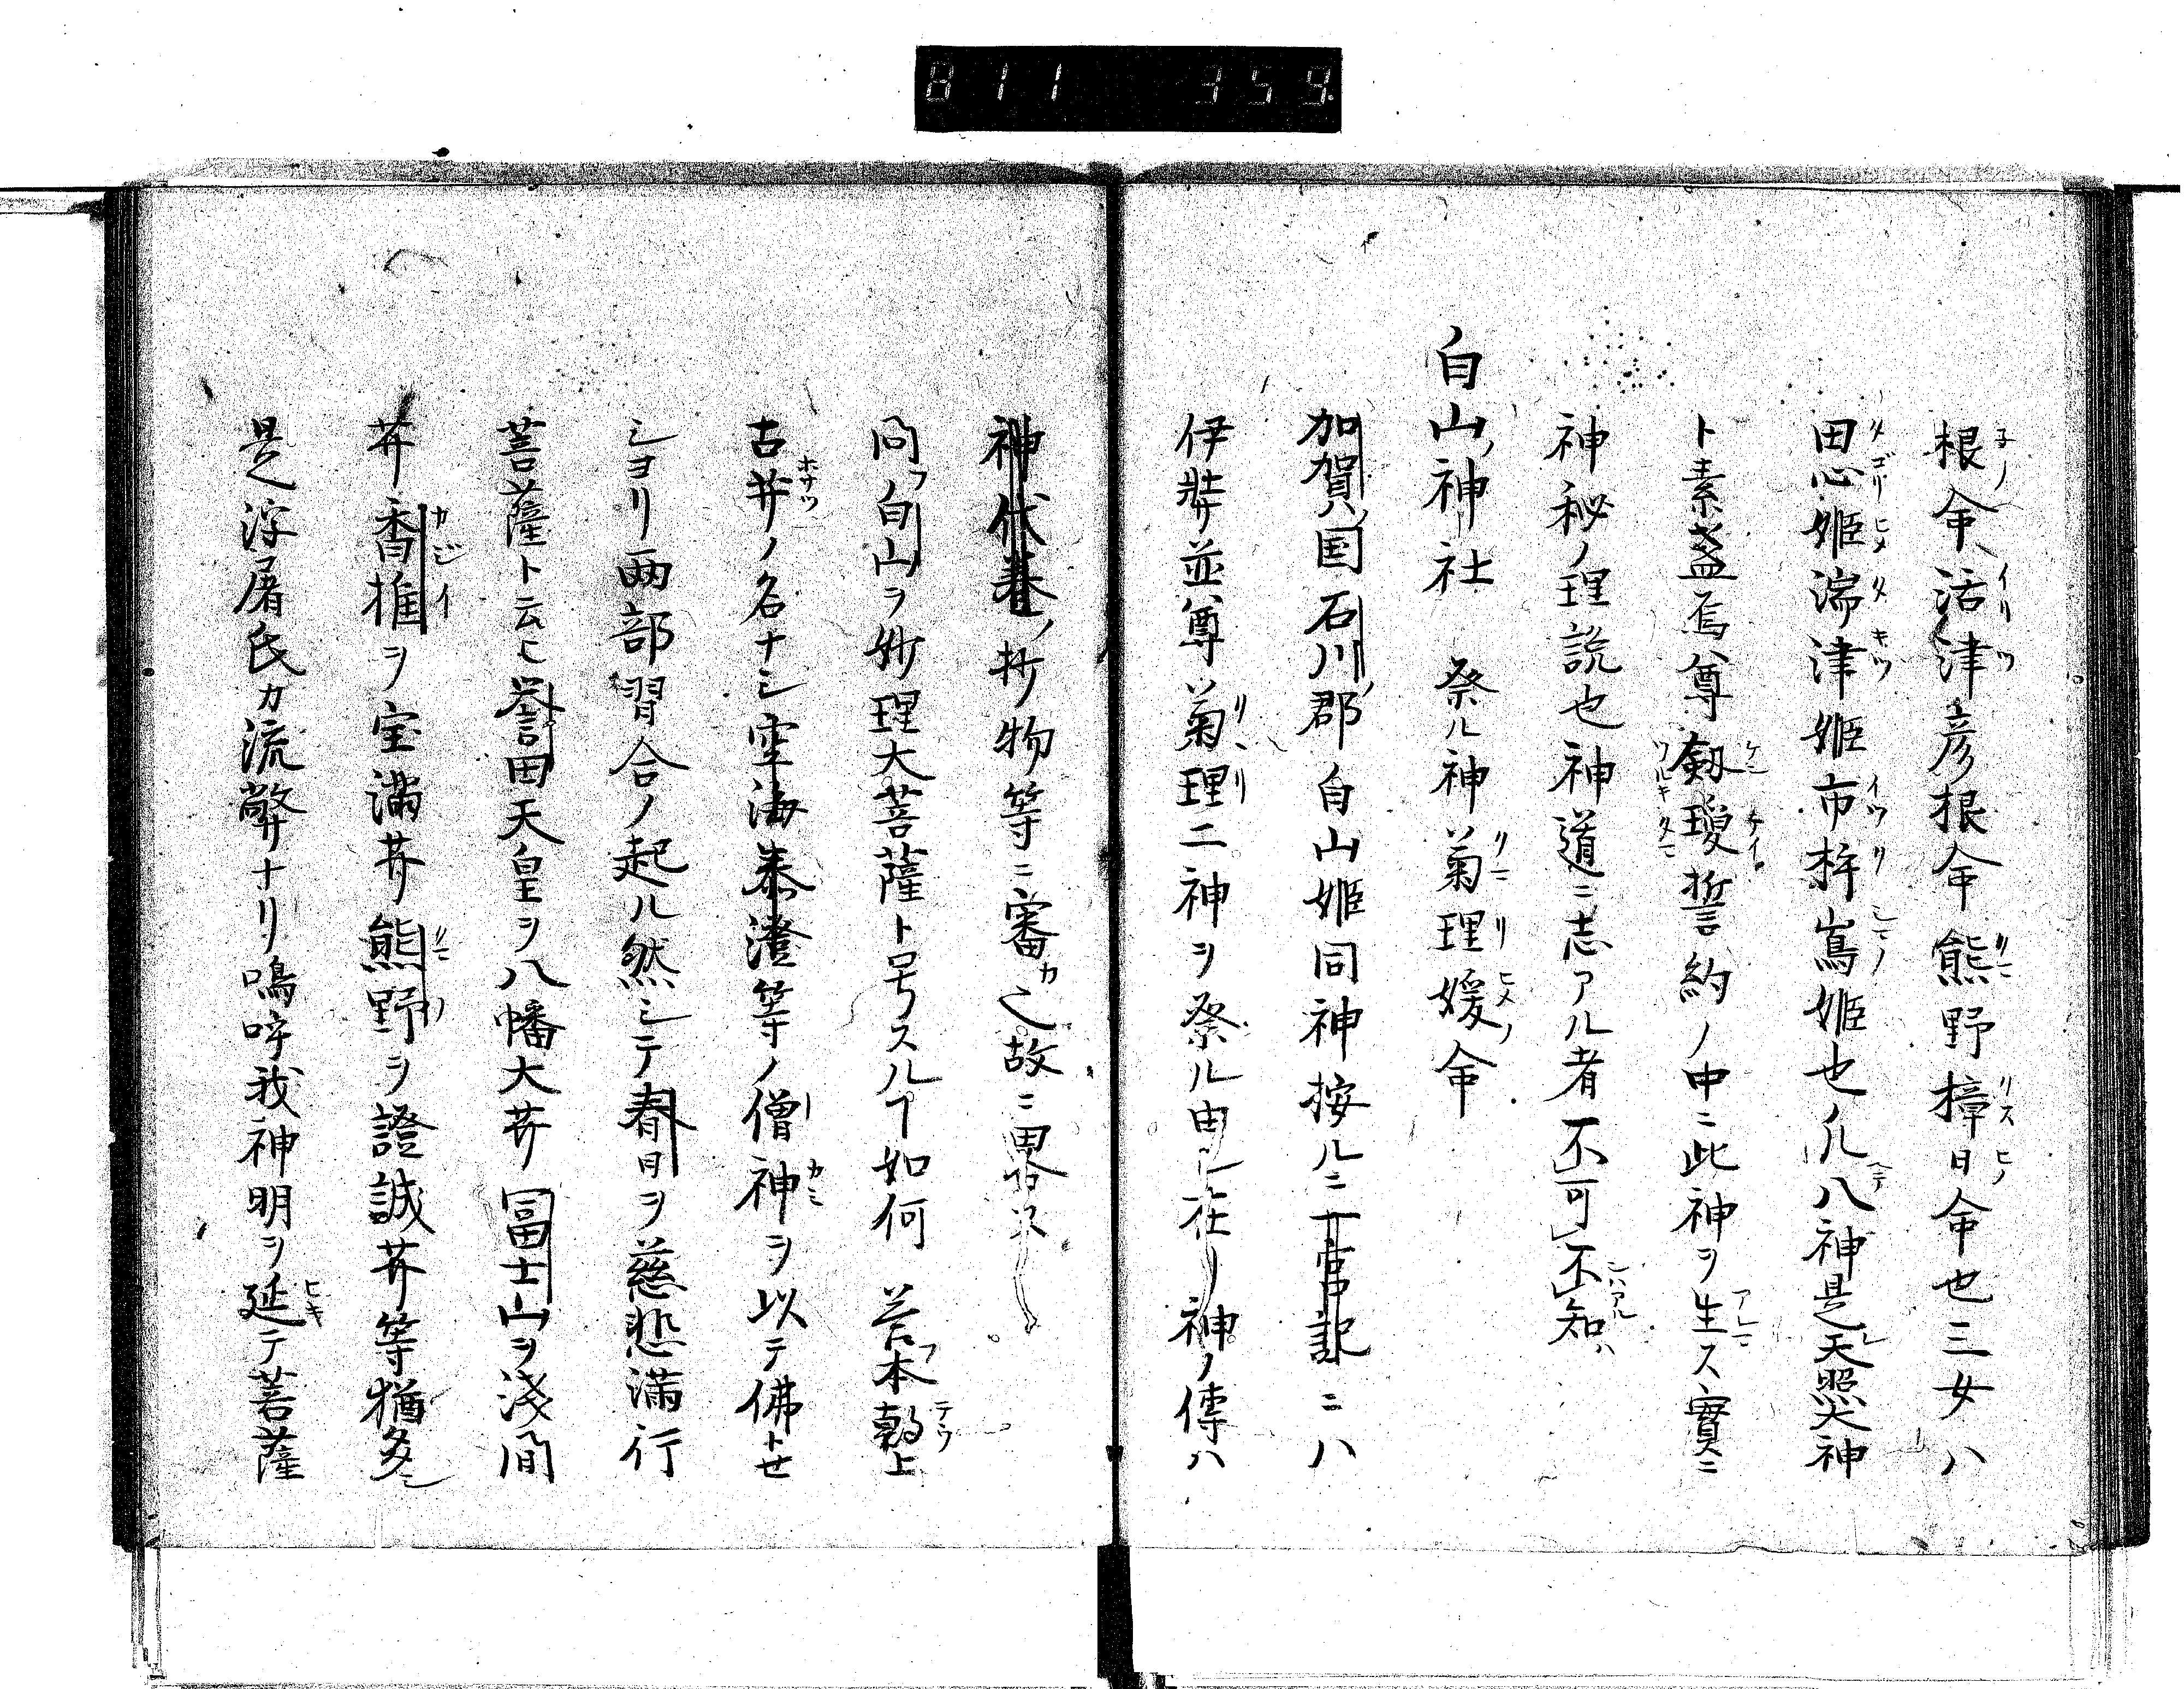 811 359
根命活津彦根命熊野櫲日命也三女ハ
田心姫湍津姫市杵嶌姫也凡八神是天照大神
ト素盞烏尊剱瓊誓約ノ中ニ此神ヲ生ス實ニ
神秘ノ理説也神道ニ志アル者不可不知ハ
白山ノ神社 祭ル神菊理媛命
加賀ノ国石川ノ郡白山姫同神按ルニ一宮記ニハ
伊弉並尊菊理二神ヲ祭ル由シ在リ神ノ傳ハ
神代巻ノ抄物等ニ審カ之故ニ畧ス
問フ白山ヲ妙理大菩薩ト号スルヿ如何 答本朝上
古𦬇ノ名ナシ空海泰澄等ノ僧神ヲ以テ佛トセ
シヨリ両部習合ノ起ル然シテ春日ヲ慈悲満行
菩薩ト云ヒ誉田天皇ヲ八幡大𦬇冨士山ヲ淺間
𦬇香推ヲ宝満𦬇熊野ヲ證誠𦬇等猶多シ
是浮屠氏カ流弊ナリ嗚呼我神明ヲ延テ菩薩